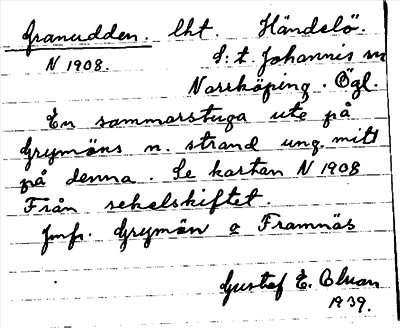 Granudden. lht. Händelö.
N 1908. S:t Johannis sn
Norrköping. Ögl.
En sommarstuga ute på
Grymöns n. strand ung. mitt
på denna. Se kartan N 1908
Från sekelskiftet.
Jmfr. Grymön o Framnäs
Gustaf E.
1939.